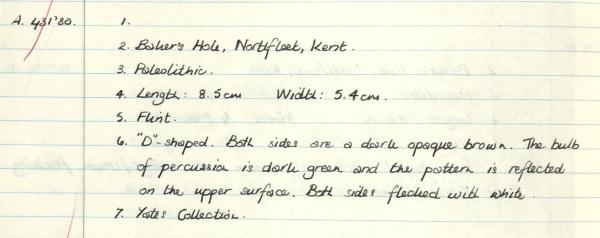 A. 431'80. 1.
2. Baker's Hole, Northfleet, Kent.
3. Paleolithic.
4. Length: 8.5cm Width: 5.4cm.
5. Flint.
6. "D"-shaped. Both sides are a dark opaque brown. The bulb
of percussion is dark green and the pattern is reflected
on the upper surface. Both sides flecked with white.
7. Yates Collection.